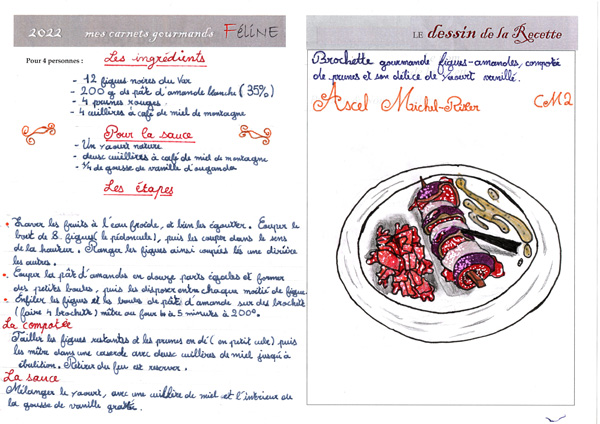 2022 mes carnets gourmands FéLiNE
Pour 4 personnes :
Les ingrédients
- 12 figues noires du Var
- 200 g de pât d'amande blanche (35%)
- 4 prunes rouges
- 4 cuillères à café de miel de montagne
Pour la sauce
- Un yaourt nature
- deux cuillères à café de miel de montagne
- 3/4 de gousse de vanille d'ouganda
Les étapes
Laver les fruits à l'eau froide, et bien les égoutter. Couper le
bort de 8 figues (le pédoncule), puis les couper dans le sens
de la hauteur. Ranger les figues ainsi coupées les une dérrière
les autres.
Couper la pât d'amandes en douze parts égales et former
des petits boules, puis les disposer entre chaque moitié de figue
Enfiler les figues et les boules de pâte d'amande sur des brochette
(faire 4 brochette) mêtre au four 4 à 5 minurts à 200°.
La compotée
Tailler les figues restantes et les prunes en dé (en petit cube) puis
les mêtre dans une caserole avec deux cuillères de miel jusqu'à
ébulition. Retirer du feu et réserver.
La sauce
Mélanger le yaourt, avec une cuillère de miel et l'intérieur de
la gousse de vanille grattée.
LE dessin de la Recette
Brochette gourmande figues-amandes, compotée
de prunes et son délice de yaourt vanillé.
Ascel Michel- CM2